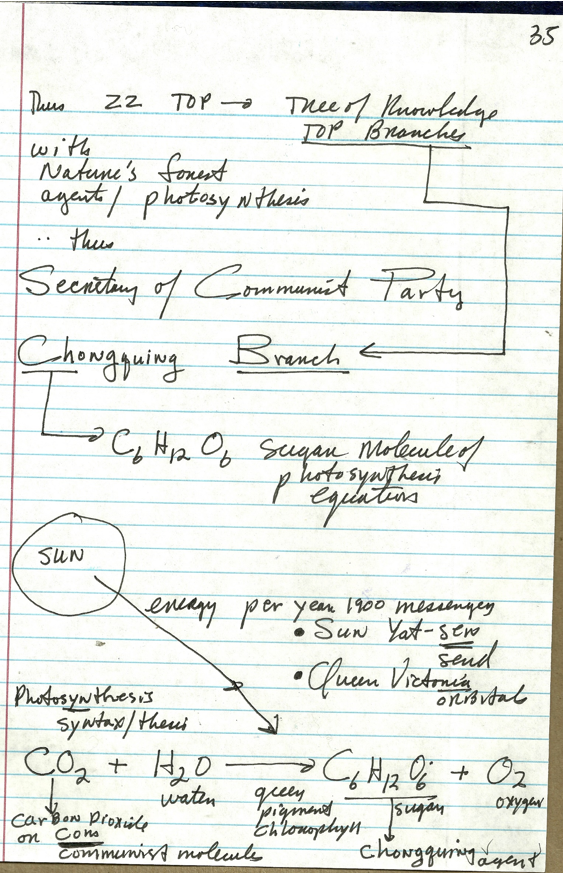 35
Thus ZZ TOP → Tree of Knowledge
TOP Branches
with
Nature's forest
agents/ photosynthesis
.. thus
Secretary of Communist Party
Chongquing Branch
C6 H12 O6 sugar molecule of
photosynthesis
equations
SUN
energy per year 1900 messenger
• Sun Yat-sen
send
• Queen Victoria
orbital
Photosynthesis
syntax/thesis
CO2 + H2O → C6 H12 O6 + O2
water green sugar oxygen
pigment
chlorophyll
carbon Dioxide
or Com
communist molecule
Chongquing agent